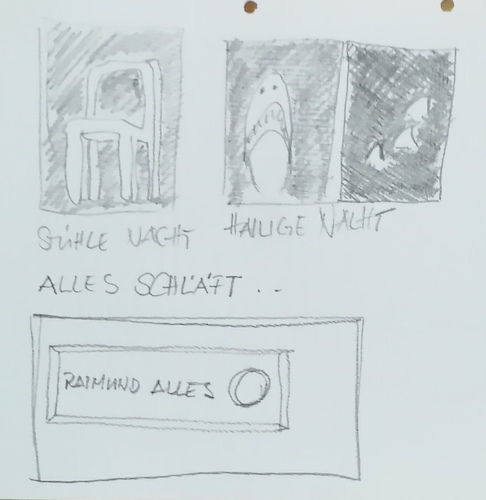 STÜHLE NACHT
HAILIGE NACHT
ALLES SCHLÄFT . .
RAIMUND ALLES